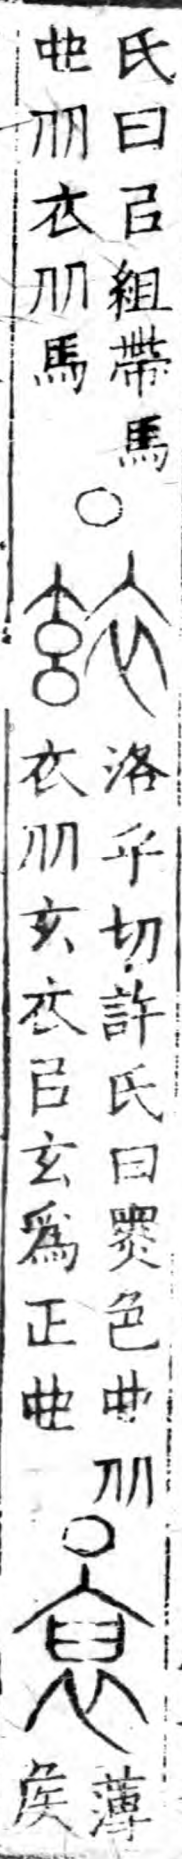 氏曰㠯組帶馬
也从衣从馬
○
袨
洛乎切許氏曰黑色也从
衣从玄衣㠯玄爲正也
○
裒
薄
矦